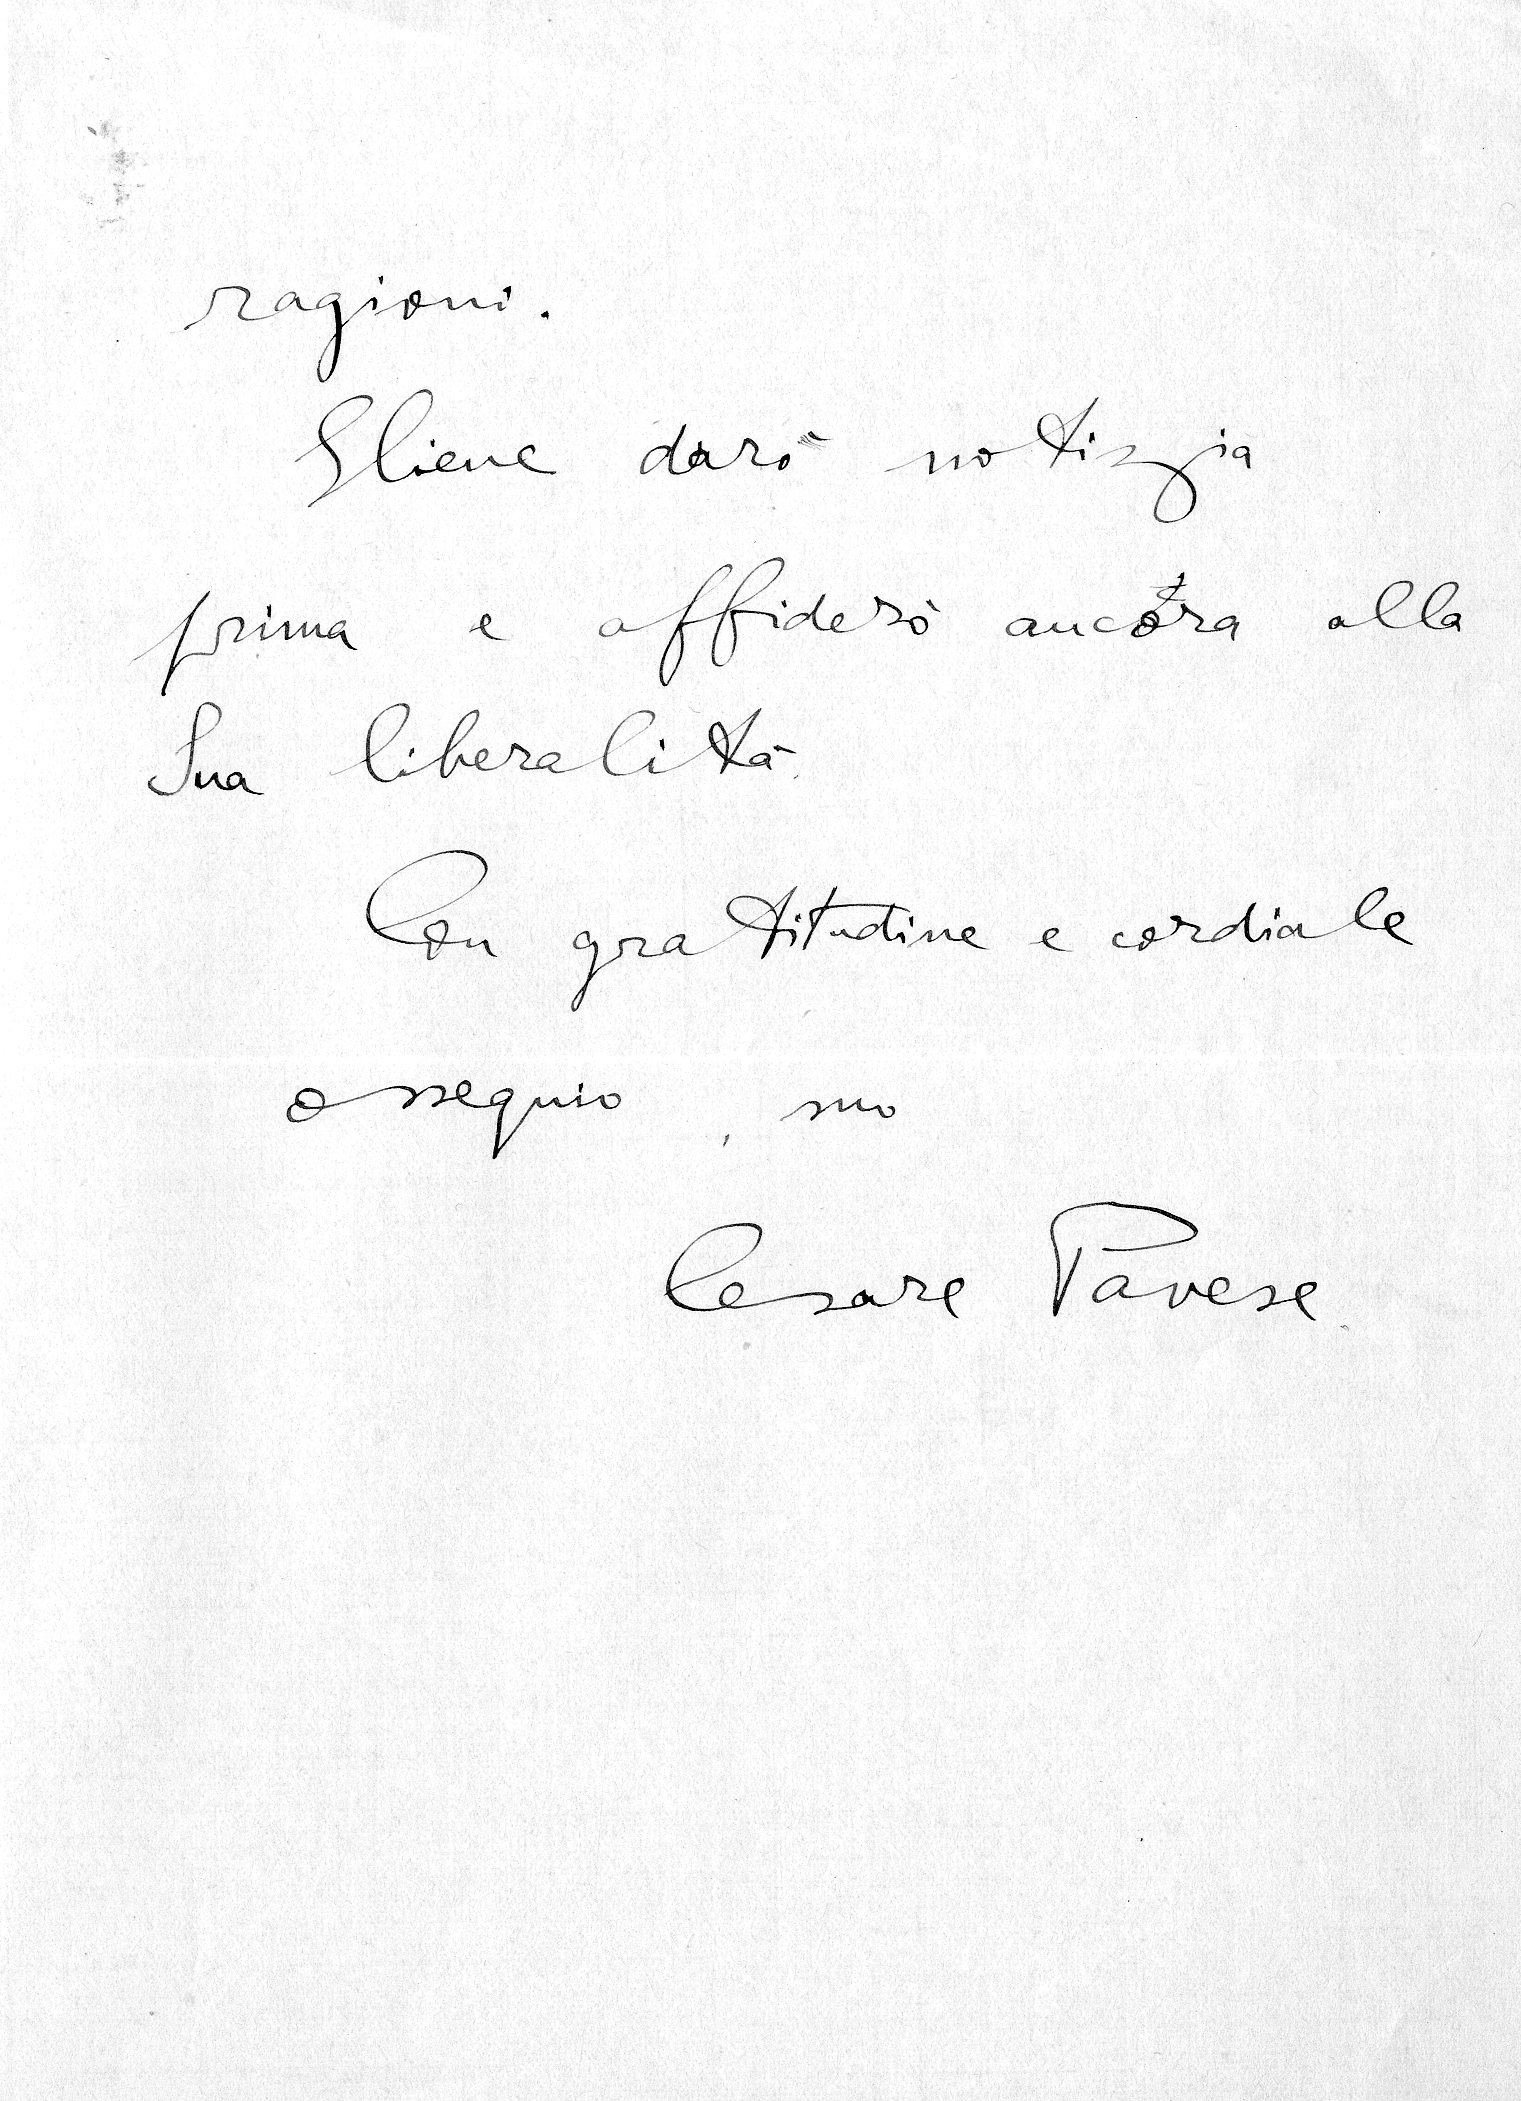 ragioni.
Gliene darò notizia
prima e affiderò ancora alla
Sua liberalità
Con gratitudine e cordiale
ossequio, suo
Cesare Pavese